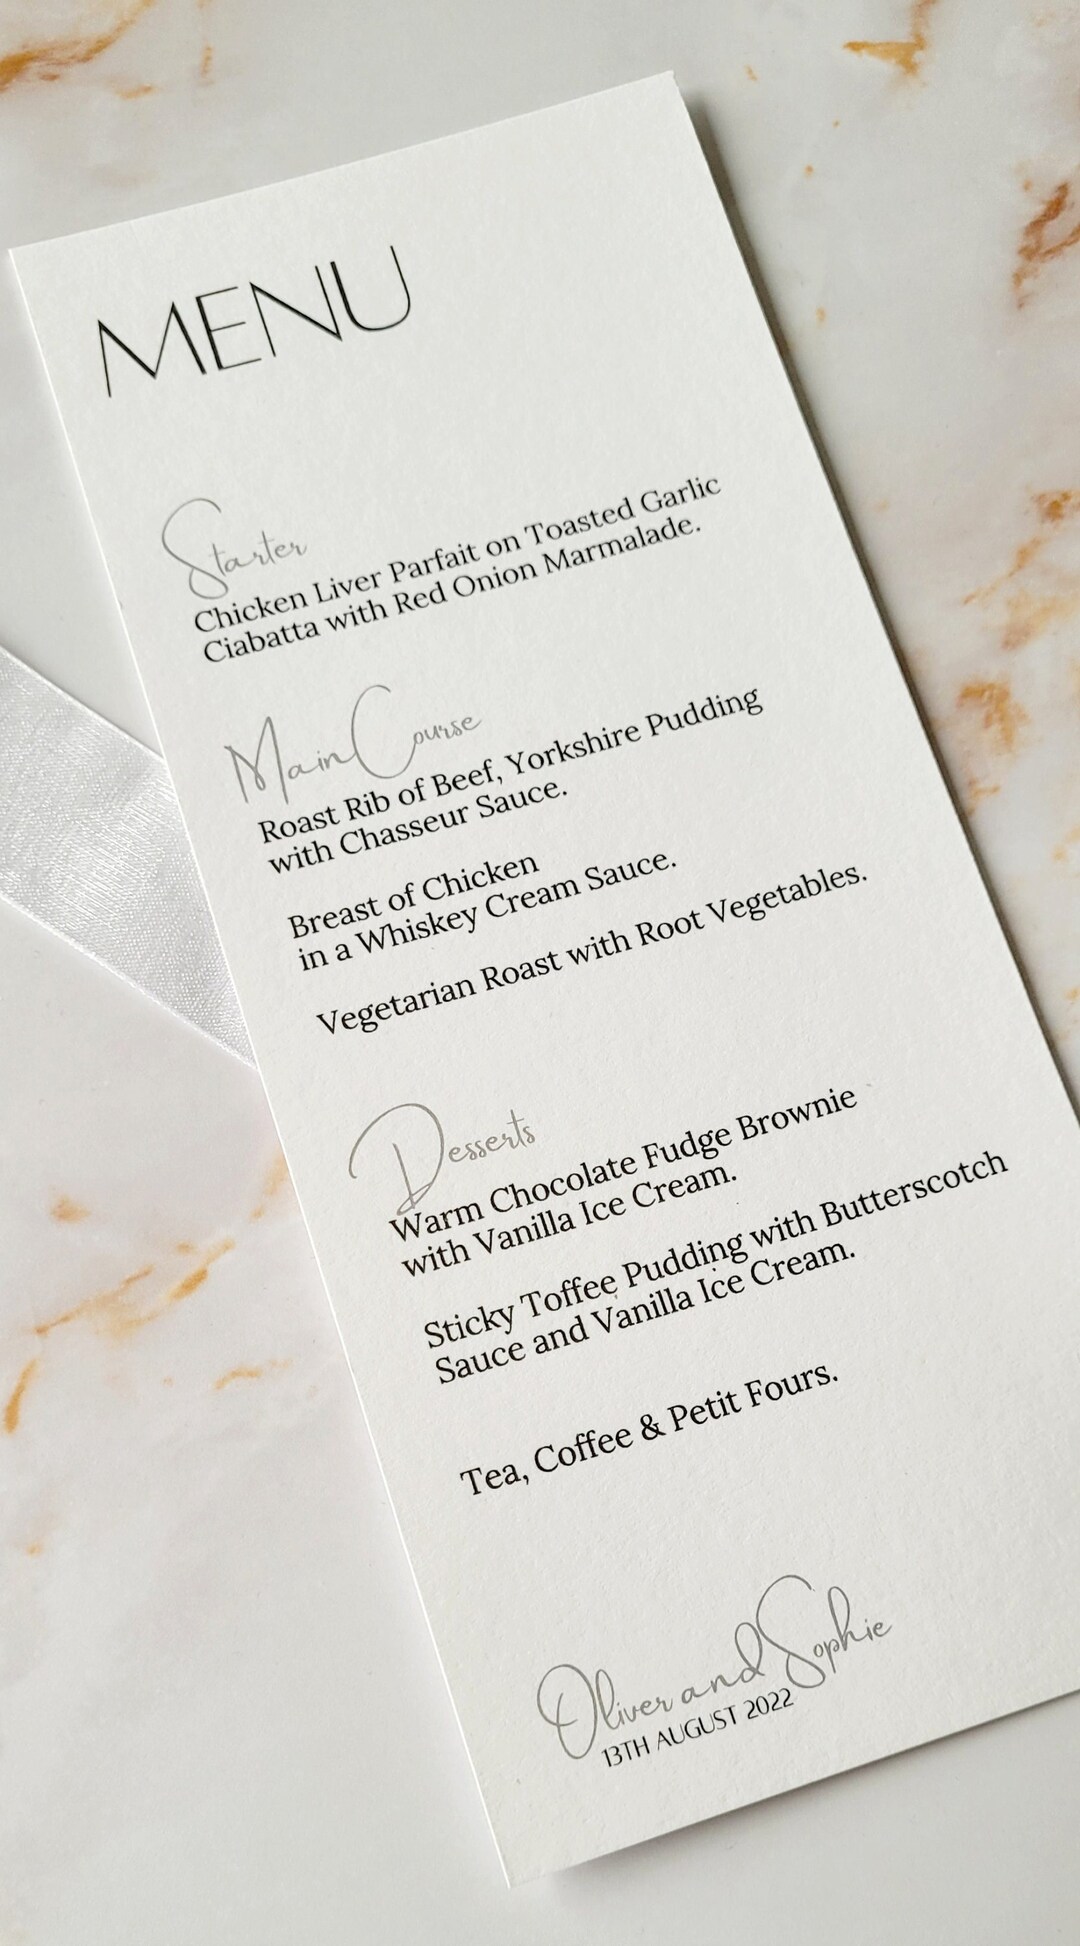 MENU
Starter
Chicken Liver Parfait on Toasted Garlic
Ciabatta with Red Onion Marmalade.
Main Course
Roast Rib of Beef, Yorkshire Pudding
with Chasseur Sauce.
Breast of Chicken
in a Whiskey Cream Sauce.
Vegetarian Roast with Root Vegetables.
Desserts
Warm Chocolate Fudge Brownie
with Vanilla Ice Cream.
Sticky Toffee Pudding with Butterscotch
Sauce and Vanilla Ice Cream.
Tea, Coffee & Petit Fours.
Oliver and Sophie
13TH AUGUST 2022